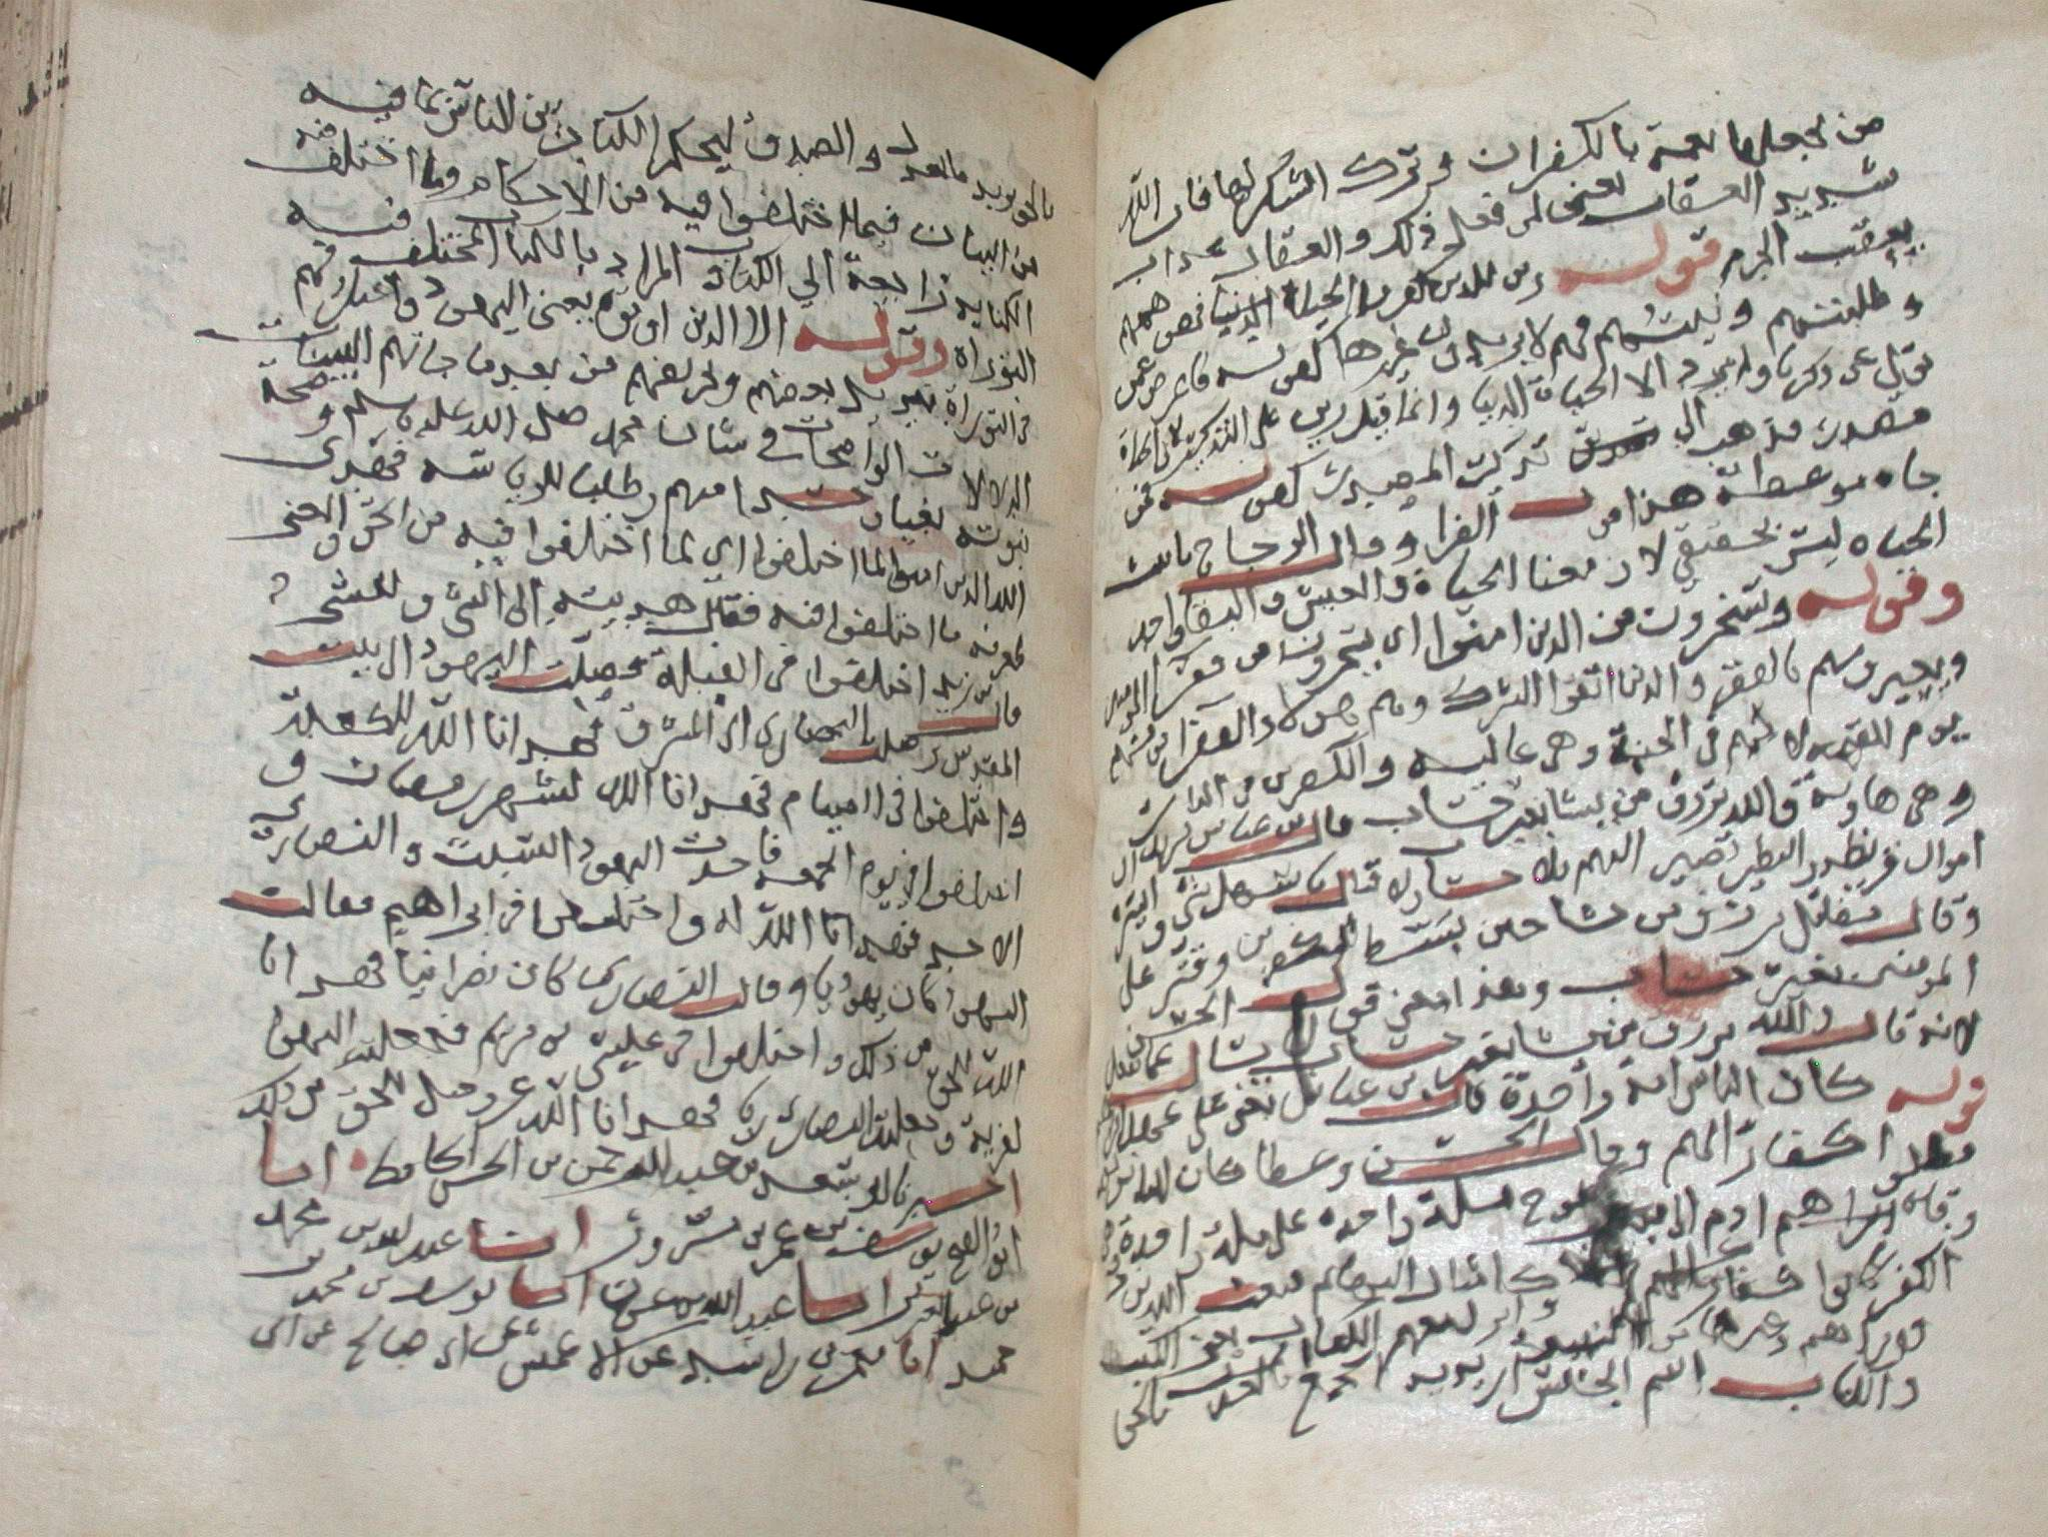 من يجعلها نعمة بالكفران وترك الشكر لها فان الله
شديد العقاب يعني لمن فعل ذلك والعقاب عذاب
يعقب الجرم قوله زين للذين كفروا الحياة الدنيا فهي همهم
وطلبتهم ونيتهم فهم لا يريدون غيرها كقوله فاعرض عمن
تولى عن ذكرنا ولم يرد الا الحياة الدنيا وانما قيل زين على التذكير لان الحياة
مصدر فذهب الى تذكير المصدر كقوله فمن
جاه موعظة هذا قول الفرا وقال الزجاج تانيث
الحياه ليس بحقيقي لان معنا الحياة والعيش والبقا واحد
وقوله ويسخرون من الذين امنوا اي يسخرون من فقرا المومنين
ويعيرونهم بالفقر والذين اتقوا الشرك وهم هولا الفقرا فوقهم
يوم القيمه لانهم في الجنة وهي عاليه والكفرين في النار
وهي هاوية والله يرزق من يشا بغير حساب قال ابن عباس يريد ان
اموال قريظة والنضير تصير اليهم بلا حساب ولا قتال باسهل شي وايسره
وقال مقاتل يرزق من يشا حين بسط للكافرين وقتر على
المومنين بغير حساب وهذا معنى قول الحسن
لانه قال والله يرزق من يشا بغير حساب لا يسال عما يفعل
قوله كان الناس امة واحدة قال ابن عباس يعني على عهد
ابراهيم كفارا كلهم وقال الحسن وعطا كان الناس من
وفاة ادم الى مبعث نوح ملة واحده على ملة
الكفر كانوا كفارا كلهم امثال البهايم فبعث الله
نوحا وابرهيم وغيرهما من النبيين وانزل معهم الكتاب يعني الكتب
والكتاب اسم الجنس اريد به الجمع بالحق
بالحق يريد بالعدل والصدق ليحكم الكتاب بين الناس بما فيه
من البيان فيما اختلفوا فيه من الاحكام وما اختلف فيه
الكنايه راجعة الى الكتاب والمراد بالكتاب المختلف فيه
التوراه وقوله الا الذين اوتوه يعني اليهود واختلافهم
في التوراة تبديل بعضهم وتحريفهم من بعد ما جاتهم البينات
الدلالات الواضحات في شان محمد صلى الله عليه وسلم وصحة
نبوته بغيا وحسدا منهم وطلبا للرياسه فهدى
الله الذين امنوا لما اختلفوا اي لما اختلفوا فيه من الحق والمعنى
لمعرفه ما اختلفوا فيه فقال هديته الى الشي وللشي
قال ابن زيد اختلفوا في القبلة فصلت اليهود الى بيت
المقدس وصلت النصارى الى المشرق فهدانا الله للكعبة
واختلفوا في الصيام فهدانا الله لشهر رمضان و
اختلفوا في يوم الجمعه فاخذت اليهود السبت والنصارى
الاحد فهدانا الله له واختلفوا في ابراهيم فقالت
اليهود كان يهوديا وقالت النصارى كان نصرانيا فهدانا
الله للحق من ذلك واختلفوا في عيسى بن مريم فجعلته اليهود
لفرية وجعلته النصارى ربا فهدانا الله عز وجل للحق من ذلك
اخبرنا سعيد بن عبد الرحمن بن الحسن الحافظ انبا
ابو الفتح يوسف بن عمر بن مسرور انبا عبد الله بن محمد
بن عبد العزيز انبا عبيد الله بن عمر انبا يوسف بن محمد بن
حميد انا معمر بن راشد عن الاعمش عن ابي صالح عن ابي